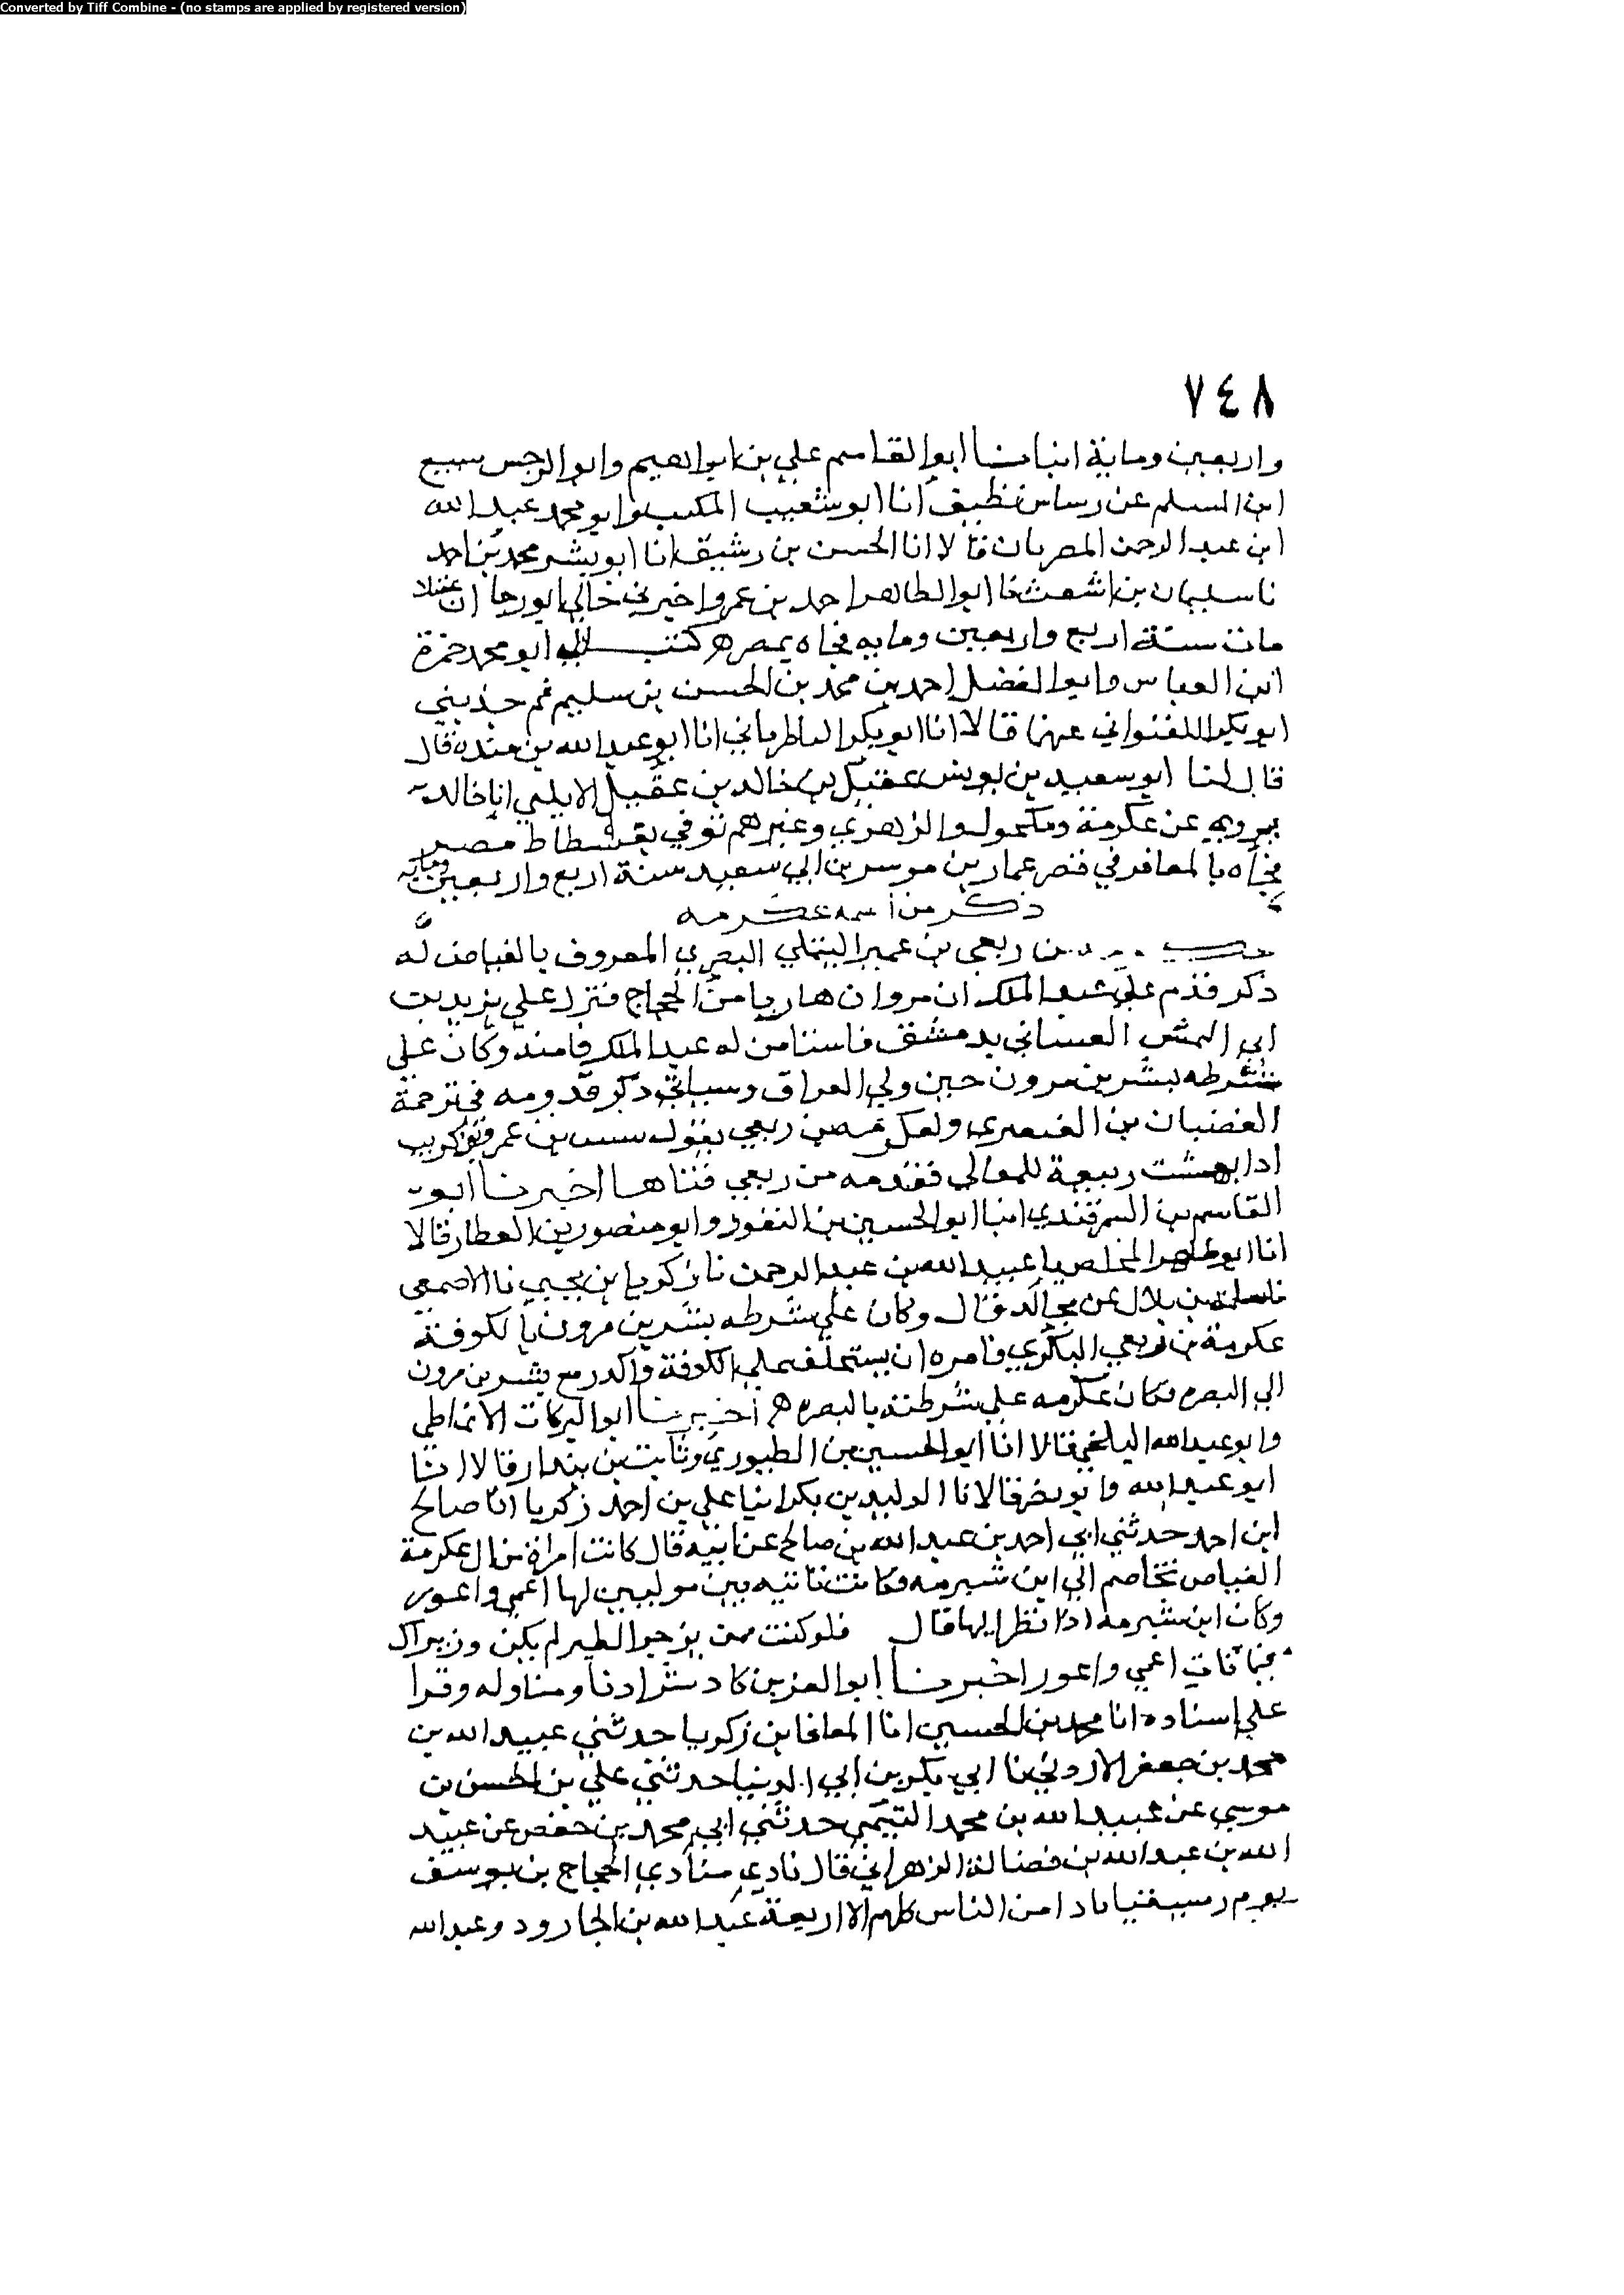 Converted by Tiff Combine - (no stamps are applied by registered version)
٧٤٨
واربعين وماية انبانا ابوا القاسم علي بن ابراهيم وابوا الوحس سبيع
ابن المسلم عن رسا بن نظيف انا ابو شعيب المكتب وابو محمد عبد الله
ابن عبد الرحمن المصريان قالا انا الحسن بن رشيق انا ابو بشر محمد بن احمد
نا سليمان بن اشعث نا ابوا الطاهر احمد بن عمرو اخبرني خالي ابو رجا ان عقيلا
مات سنة اربع واربعين ومايه فجاه بمصر ه كتب الي ابو محمد حمزة
ابن العباس وابوا الفضل احمد بن محمد بن الحسن بن سليم ثم حدثني
ابو بكر اللفتواني عنهما قالا انا ابو بكر الباطرقاني انا ابو عبد الله بن منده قال
قال لنا ابو سعيد بن يونس عقيل بن خالد بن عقيل الايلي ابا خالد
يروي عن عكرمة ومكحول والزهري وغيرهم توفي بفسطاط مصر
فجاه بالمعافر في قصر عمار بن موسر بن ابي سعيد سنة اربع واربعين ومايه
ذكر من اسمه عكرمه
بن ربعي بن عمير التيملي البصري المعروف بالفياض له
ذكر قدم علي عبد الملك ان مروان هاربا من الحجاج فنزل علي يزيد بن
ابي النمش الغساني بدمشق فاستامن له عبد الملك فامنه وكان علي
شرطه بشر بن مرون حين ولي العراق وسياتي ذكر قدومه في ترجمة
الغضبان بن القبعثري ولعكرمه بن ربعي يقول بن عمرو
اذا بهشت ربيعة للمعالي فقدمه من ربعي فتاها اخبرنا ابو
القاسم بن السمرقندي انبا ابو الحسين بن النقور وابو منصور بن العطار قالا
انا ابو طاهر المخلص يا عبيد الله بن عبد الرحمن نا زكريا بن يحيي نا الاصمعي
نا سلمة بن بلال عن مجالد قال وكان علي شرطه بشر بن مرون بالكوفة
عكرمة بن ربعي البكري فامره ان يستخلف علي الكوفة وانحدر مع بشر بن مرون
الي البصره فكان عكرمه علي شرطته بالبصره ه اخبرنا ابوا البركات الانماطي
وابو عبد الله البلخي قالا انا ابوا الحسين بن الطيوري وثابت بن بندار قالا انبا
ابو عبد الله وابو نصر قالا نا الوليد بن بكر انبا علي بن احمد زكريا انا صالح
ابن احمد حدثني ابي احمد بن عبد الله بن صالح عن ابيه قال كانت امراة من ال عكرمة
الفياض تخاصم الي ابن شبرمه فكانت تاتيه بين موليين لها اعمي واعور
وكان ابن شبرمه اذا نظر اليها قال فلو كنت ممن يزجر الطير لم يكن وزيراك
فيما ناب اعمي واعور اخبرنا ابوا العز بن كادش اذنا ومناوله وقرا
علي اسناده انا محمد بن الحسين انا المعافا بن زكريا حدثني عبيد الله بن
محمد بن جعفر الازدي نا ابي بكر بن ابي الدنيا حدثني علي بن الحسن بن
موسي عن عبيد الله بن محمد التيمي حدثني ابي محمد بن حفص عن عبيد
الله بن عبد الله بن فضالة الزهراني قال نادي منادي الحجاج بن يوسف
يوم رستقباباد امن الناس كلهم الا اربعة عبد الله بن الجارود وعبد الله